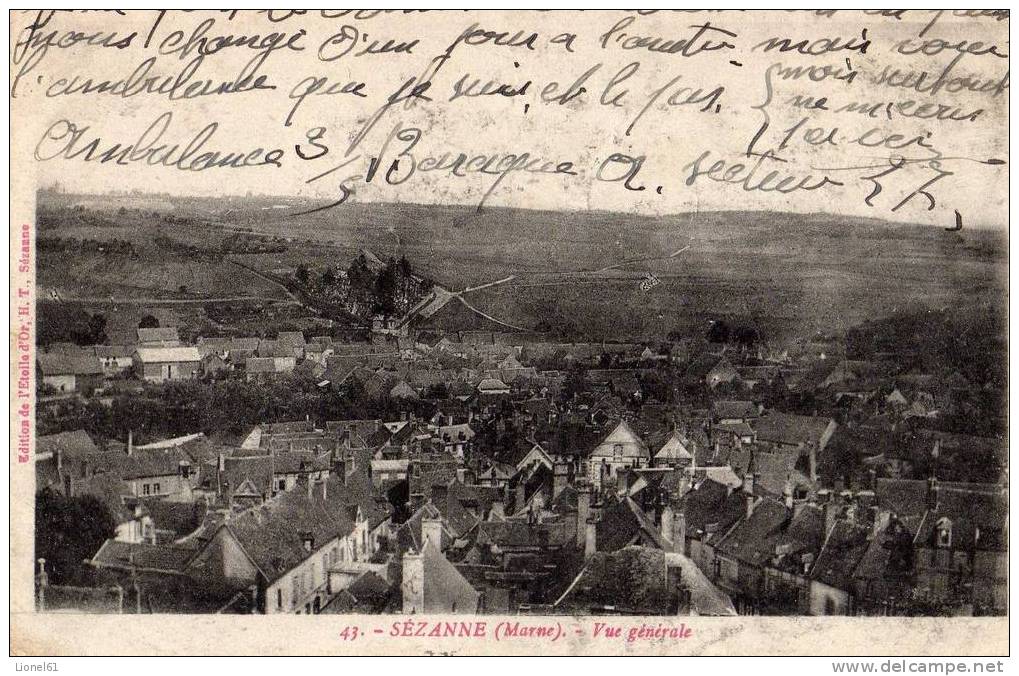 nous change d'un jour a l'autre mais voici
l'ambulance que je suis, et le pas,
mais surtout
ne m'écris
Ambulance 3/5, Baraque A. secteur 27,
Edition de l'Etoile d'Or, H. T., Sézanne
43. - SÉZANNE (Marne). - Vue générale
Lionel61
http://www.delcampe.net